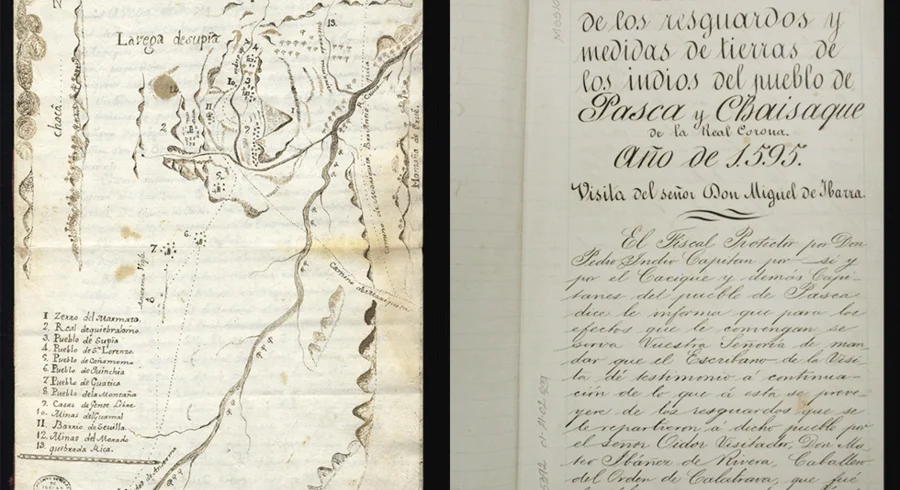 La vega desupia
chocâ
1 Zerro del Marmato.
2. Real de quiebralomo.
3. Pueblo de Supia
4. Pueblo de Sn. Lorenzo.
5. Pueblo de Cañamomo
6. Pueblo de Quinchia
7 Pueblo de Guatica
8 Pueblo de la Montaña
9. Casas de Jente Libre
10. Minas del Guamal
11. Barrio de Sevilla
12. Minas del Morado
13. quebrada Rica.
de los resguardos y
medidas de tierras de
los indios del pueblo de
Pasca y Chaisaque
de la Real Corona.
Año de 1.595.
Visita del señor Don Miguel de Ibarra.
El Fiscal Protector por Don
Pedro Indio Capitan por si y
por el Cacique y demás Capi-
tanes del pueblo de Pasca
dice le informa que para los
efectos que le convengan se
sirva Vuestra Señoría de man-
dar que el Escribano de la Visi-
ta dé testimonio á continua-
ción de lo que á esta se prove-
yere de los resguardos que se
le repartieron á dicho pueblo por
el Señor Oidor Visitador, Don Ma-
teo Ibáñez de Rivera, Caballero
del Orden de Calatrava, que fué